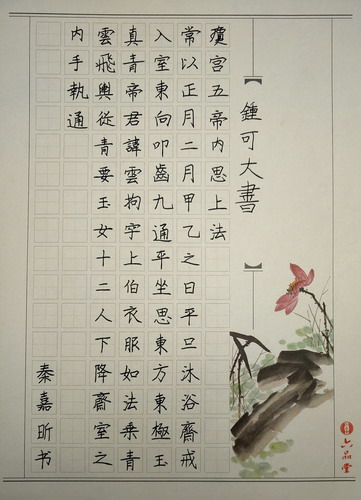 【鍾可大書】
瓊宮五帝内思上法
常以正月二月甲乙之日平旦沐浴齋戒
入室東向叩齒九通平坐思東方東極玉
真青帝君諱雲拘字上伯衣服如法乘青
雲飛輿從青要玉女十二人下降齋室之
内手執通
秦嘉昕书
六品堂